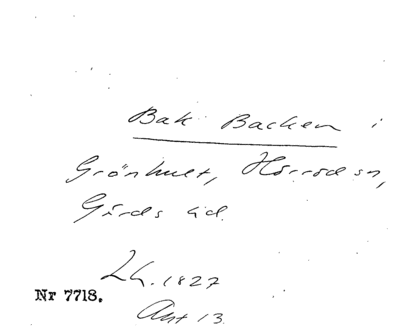 Bak Backen i
Grönhult, Hörröds sn,
Gärds hd.
Lh. 1827
Nr 7718.
Akt 13.